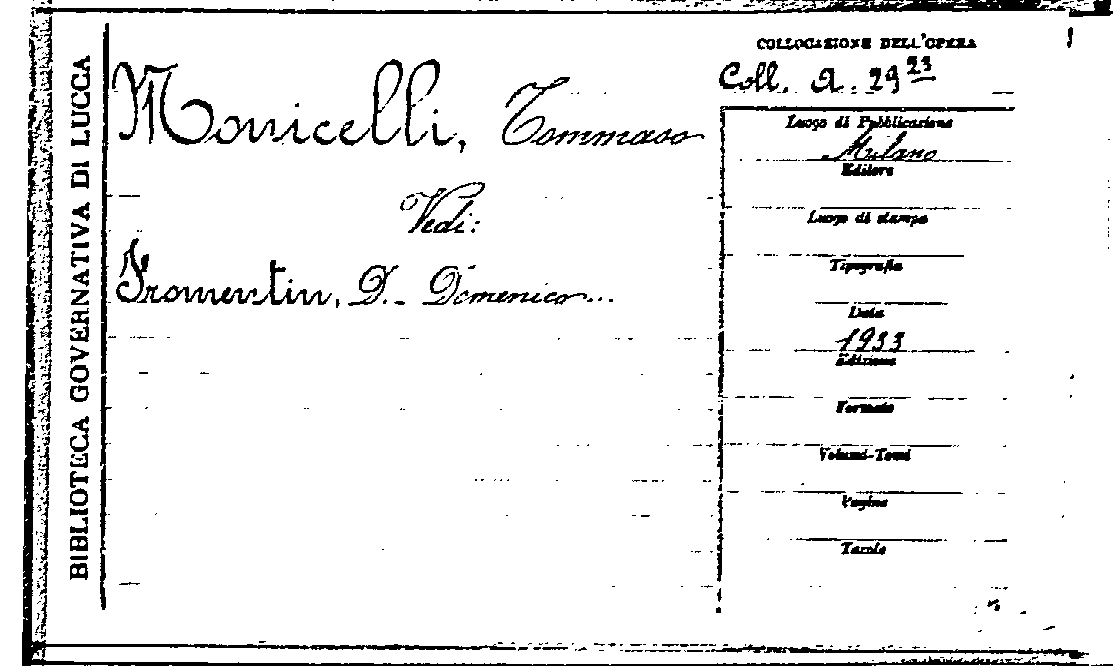 BIBLIOTECA GOVERNATIVA DI LUCCA
Monicelli, Tommaso
Vedi:
Fromentin, D. - Domenico...
COLLOCAZIONE DELL'OPERA
Coll. A. 29 23
Luogo di Pubblicazione
Milano
Editore
Luogo di stampa
Tipografia
Data
1933
Edizione
Formato
Volumi-Tomi
Pagine
Tavole